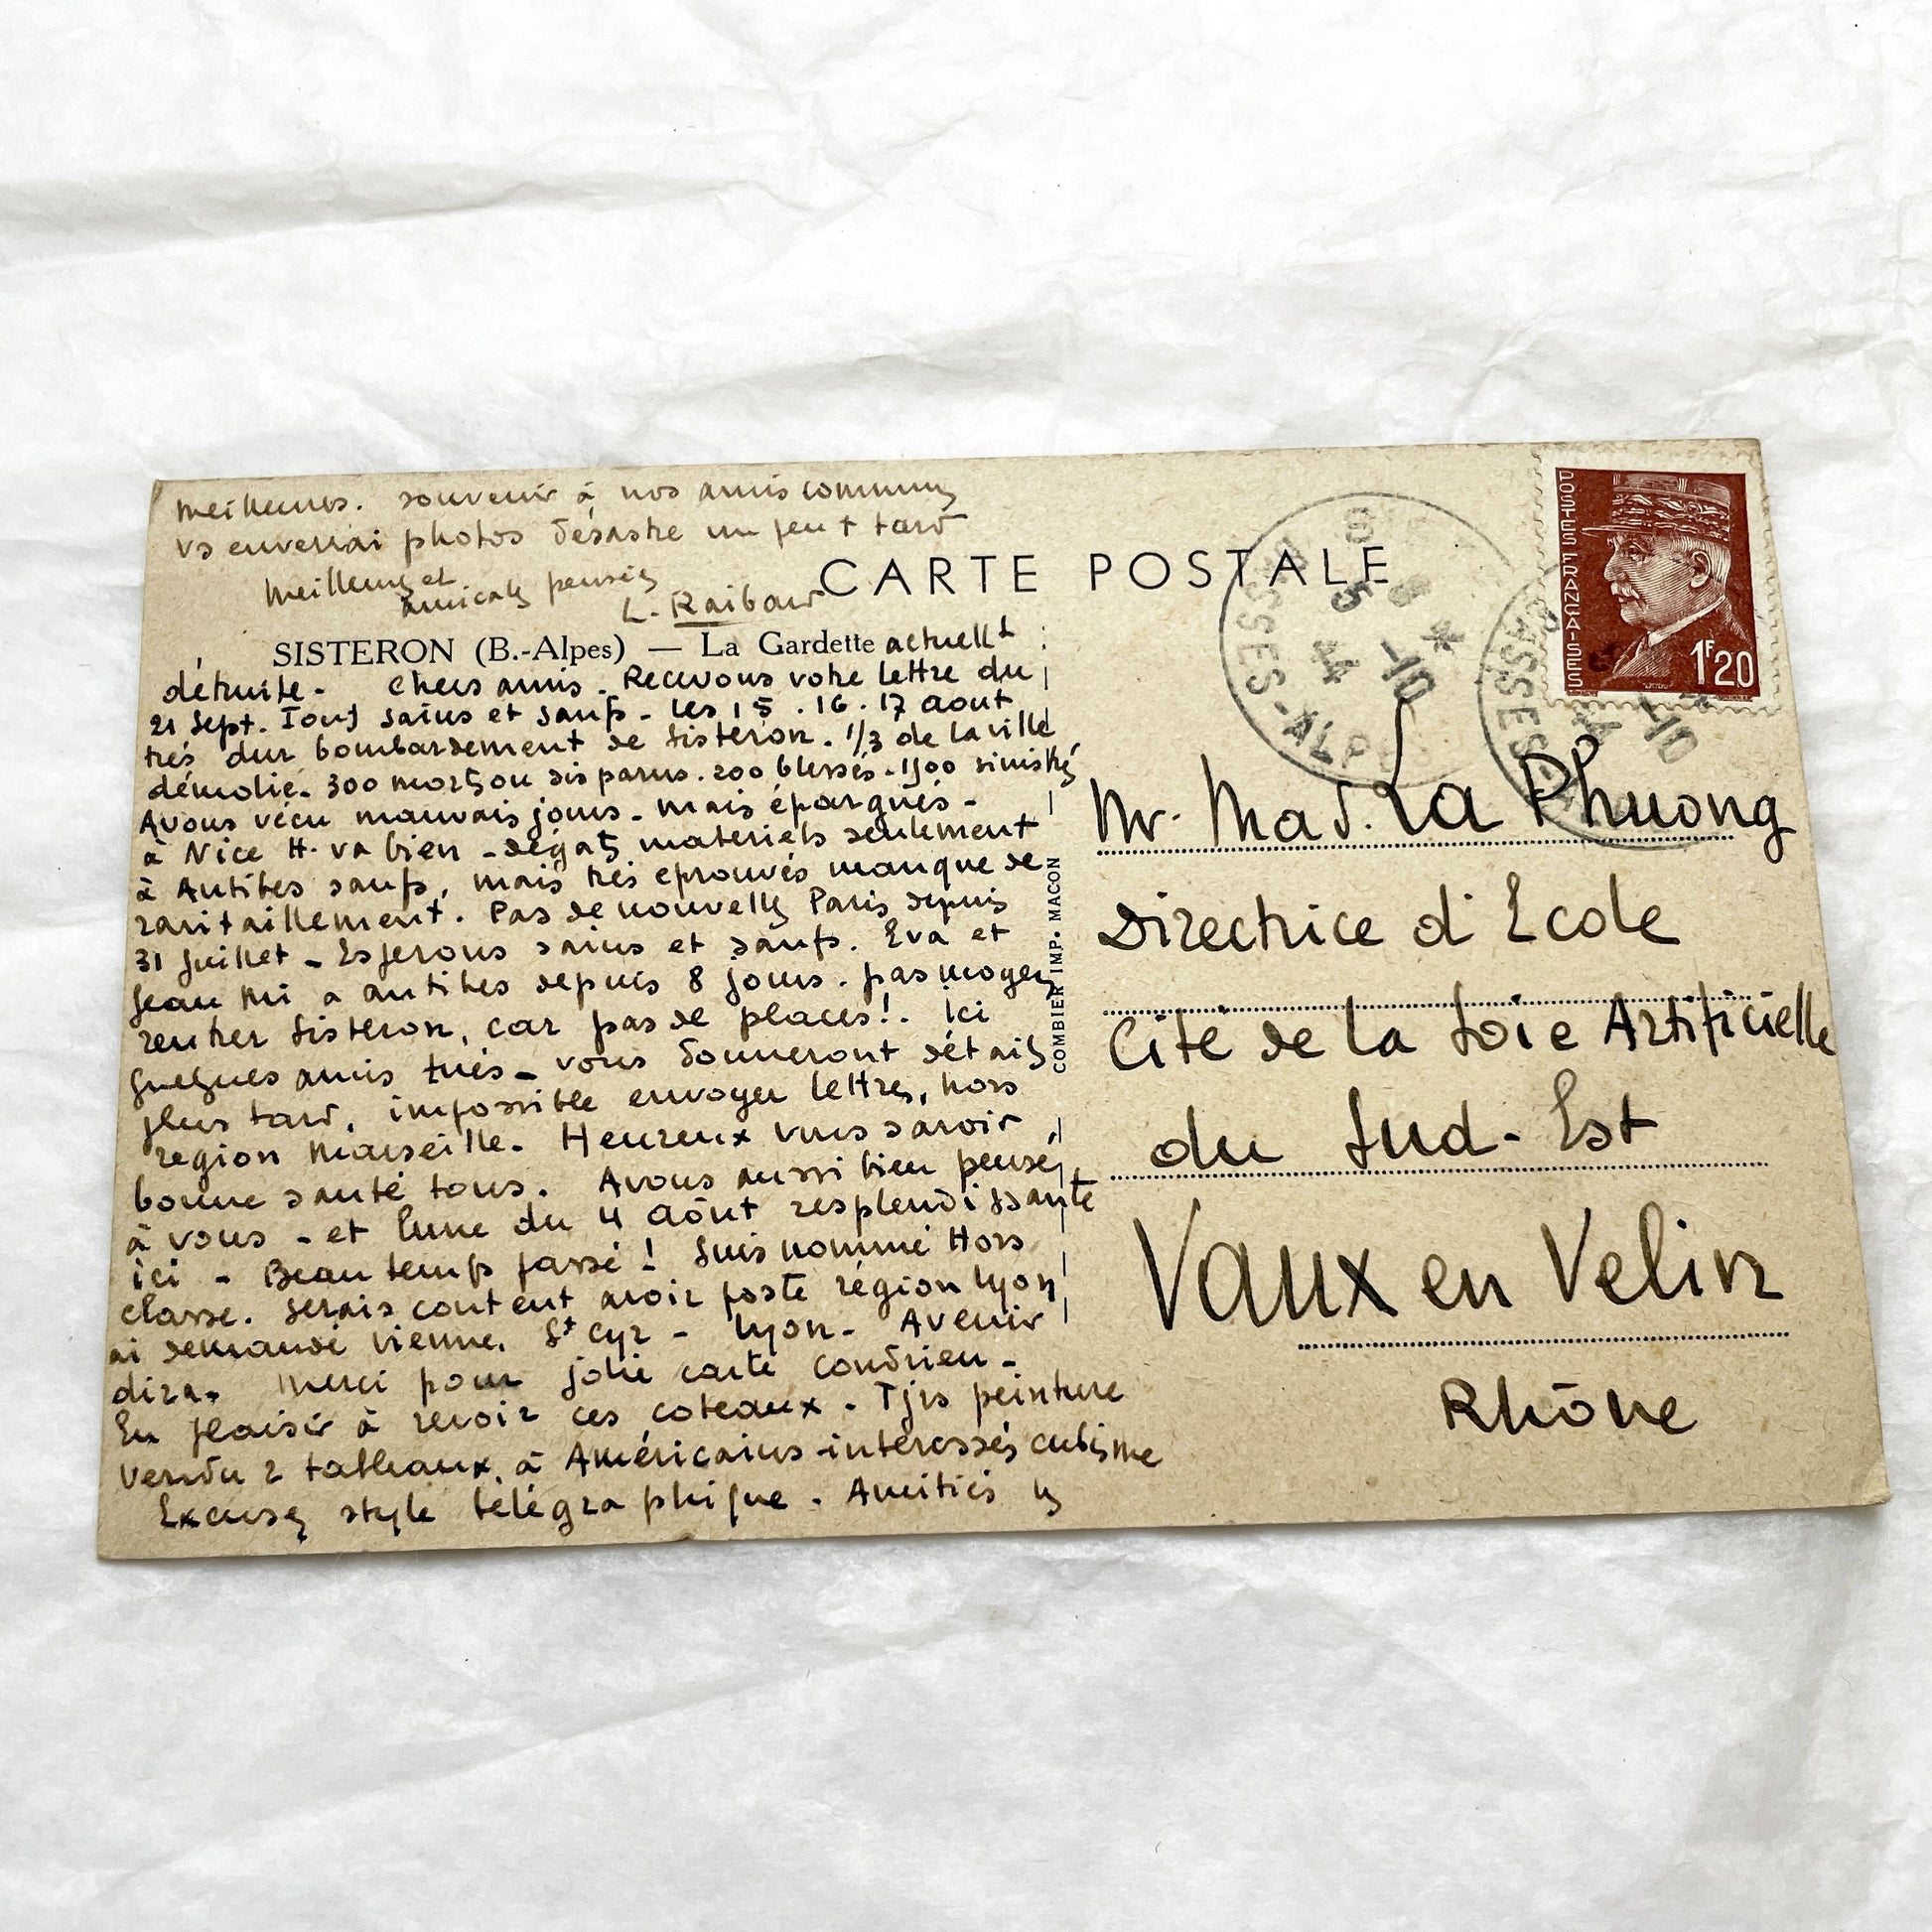 meilleures. souvenir à nos amis communs
vs enverrai photos désastre un peu + tard
meilleures et
amicales pensées
L. Raibaud
CARTE POSTALE
SISTERON (B.-Alpes) — La Gardette actuellt
détruite - chers amis. Recevons votre lettre du
21 sept. Tous sains et saufs - les 15. 16. 17 aout
très dur bombardement de Sisteron. 1/3 de la ville
démolie. 300 morts ou disparus. 200 blessés. 1500 sinistrés
Avons vécu mauvais jours - mais épargnés -
à Nice H. va bien - dégats materiels seulement
à Antibes saufs, mais très eprouvés manque de
ravitaillement. Pas de nouvelles Paris depuis
31 juillet - Esperons sains et saufs. Eva et
Jean Mi a antibes depuis 8 jours. pas moyen
rentrer Sisteron, car pas de places!. Ici
quelques amis tués - vous donneront détails
plus tard, impossible envoyer lettres, hors
region Marseille. Heureux vous savoir
bonne santé tous. Avons aussi bien pensé
à vous - et lune du 4 août resplendissante
ici - Beau temps passé! Suis nommé Hors
classe. Serais content avoir poste région Lyon
ai demandé Vienne. St Cyr - Lyon - Avenir
dira. Merci pour jolie carte Condrieu -
En plaisir à revoir ces coteaux. Tjrs peinture
Vendu 2 tableaux à Américains intéressés cubisme
Excuses style télégraphique. Amitiés
COMBIER IMP. MACON
POSTES FRANÇAISES
1F20
BASSES-ALPES
5 -10
44
BASSES
-10
44
Mr. Mad. La Phuong
Directrice d'Ecole
Cité de la Soie Artificielle
du Sud-Est
Vaux en Velin
Rhône